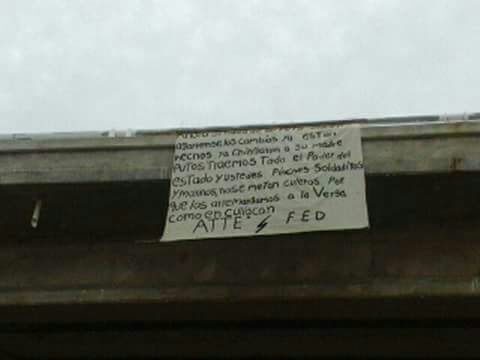 agarrense los cambios ya estan
hechos ya chingaron a su madre
putos traemos Todo el Poder del
estado y ustedes Pinches Soldaditos
y marinos, no se metan culeros Por
que los arremangamos a la Verga
como en culiacan
ATTE FED